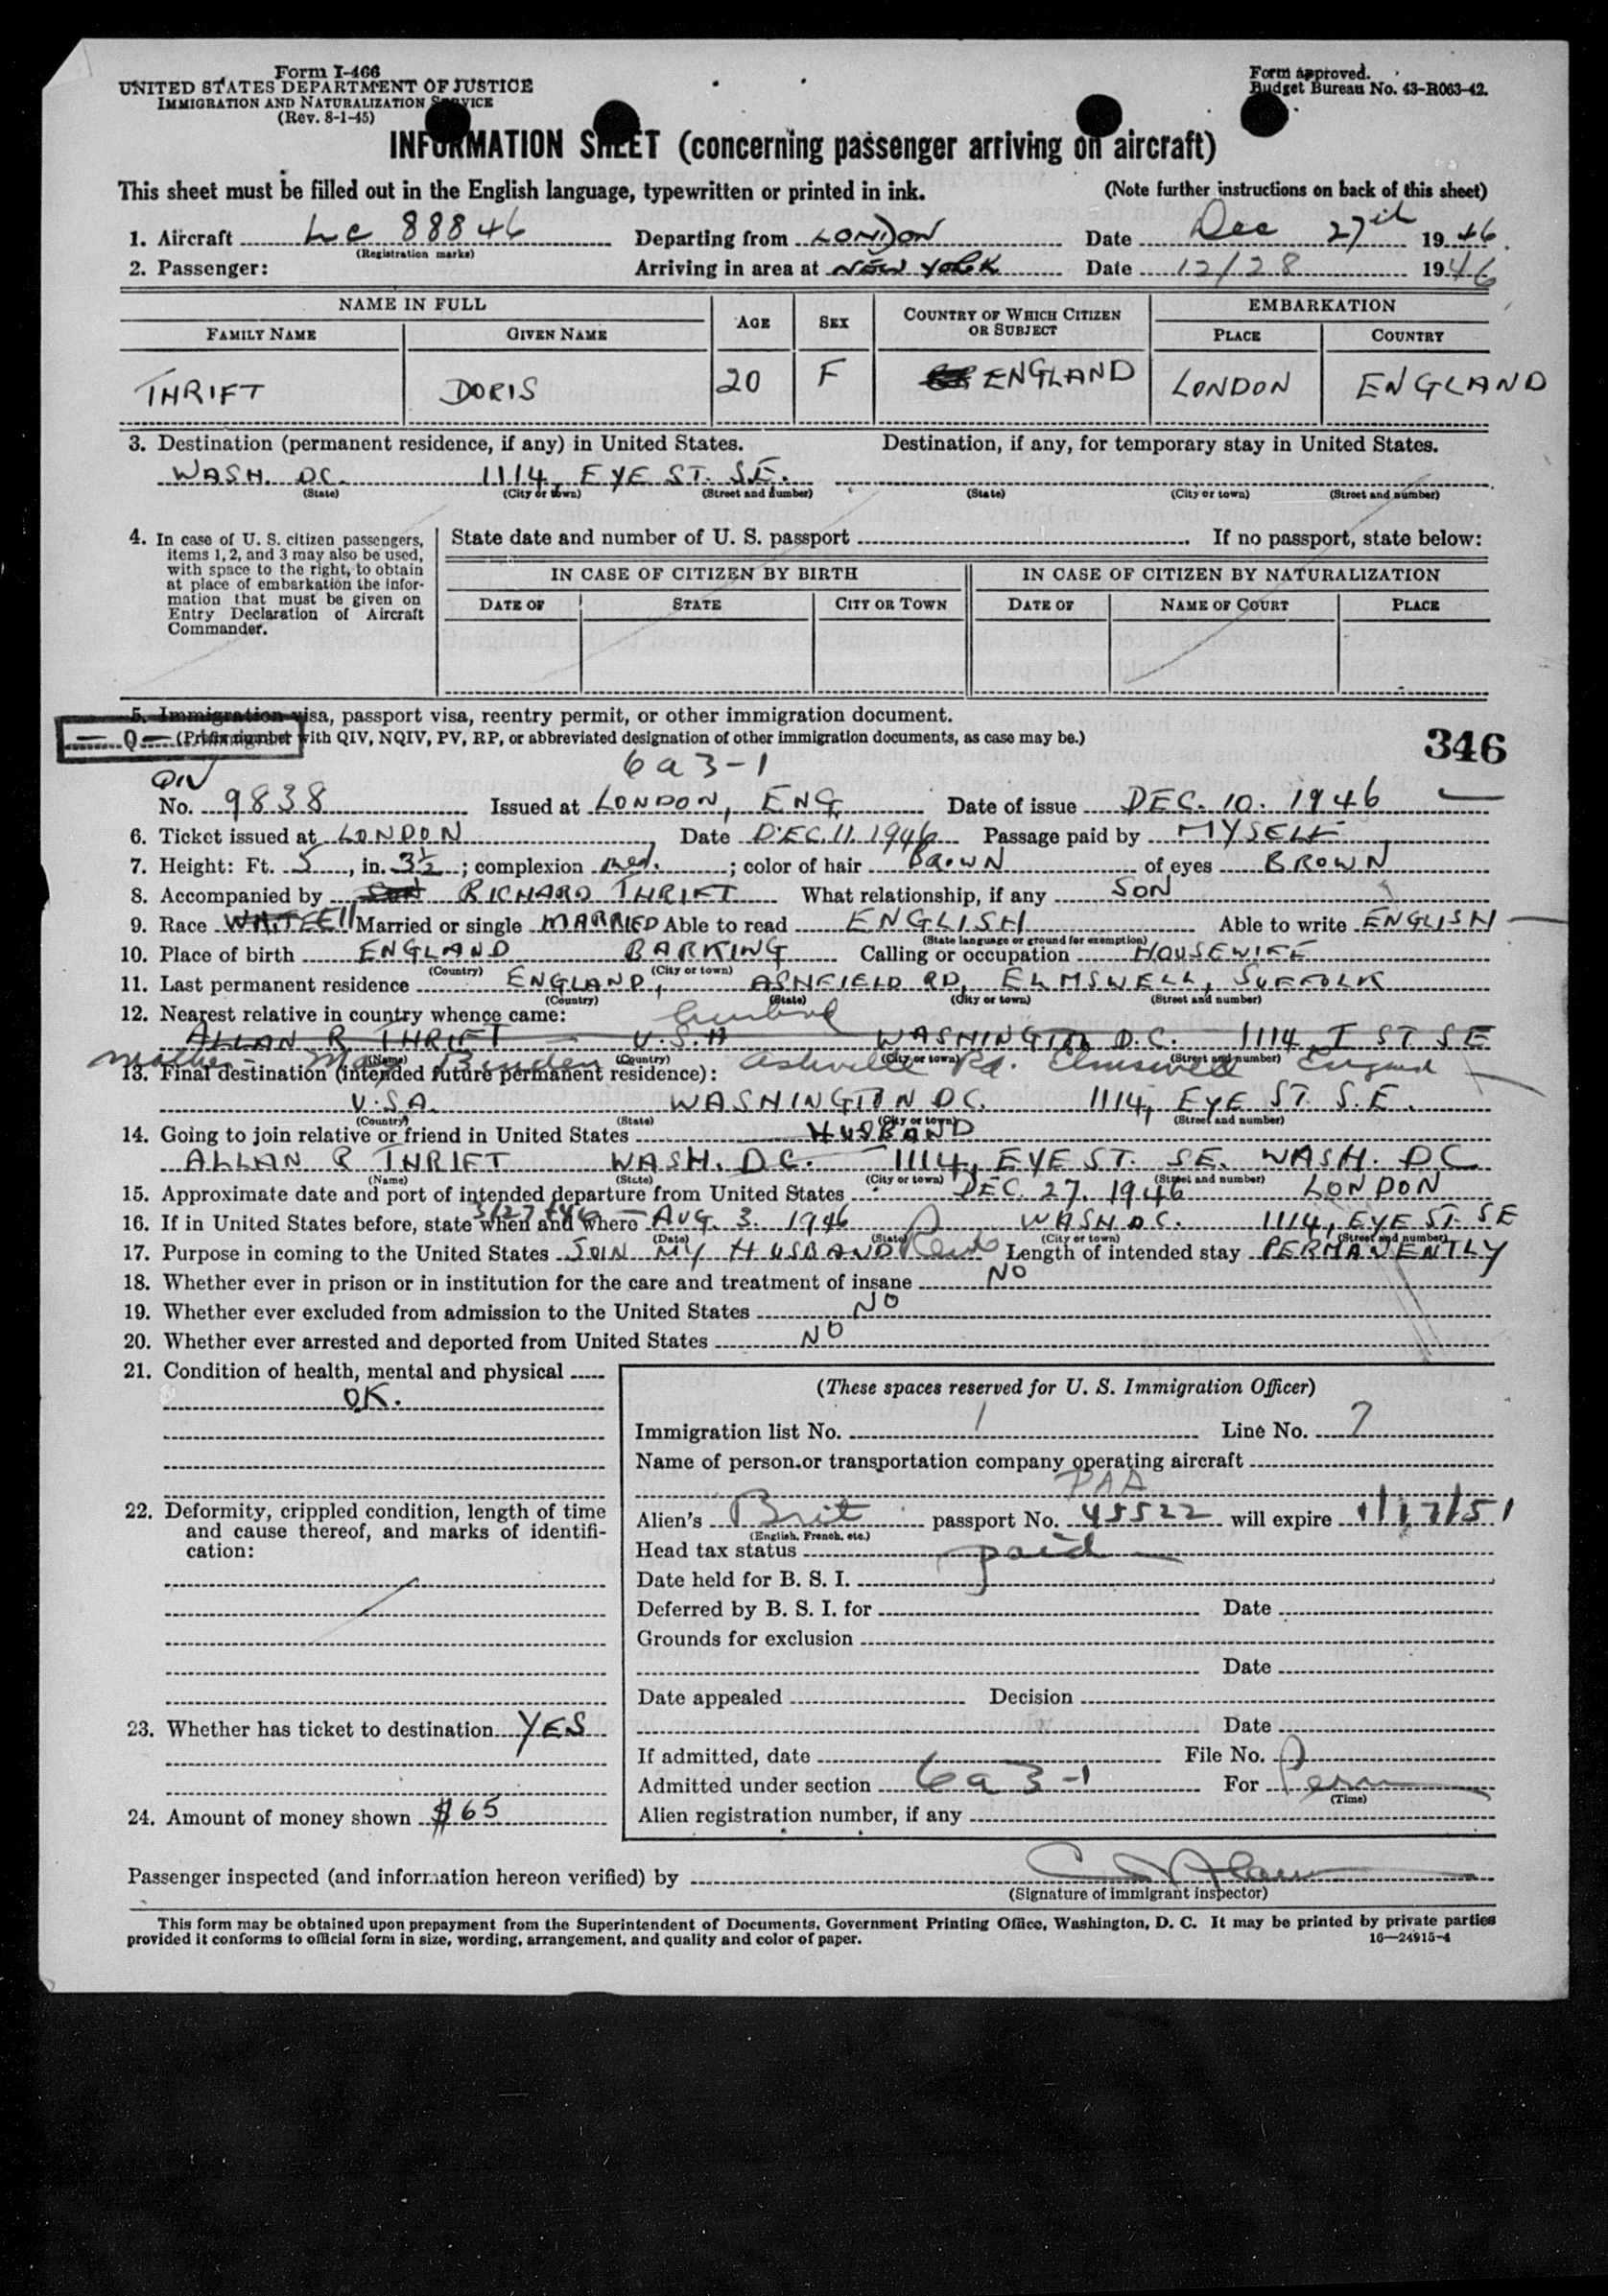 Form I-466
UNITED STATES DEPARTMENT OF JUSTICE
IMMIGRATION AND NATURALIZATION SERVICE
(Rev. 8-1-45)
Form approved.
Budget Bureau No. 43-R063-42.
INFORMATION SHEET (concerning passenger arriving on aircraft)
This sheet must be filled out in the English language, typewritten or printed in ink. (Note further instructions on back of this sheet)
1. Aircraft 88846 Departing from LONDON Date Dec 27th 1946.
(Registration marks)
2. Passenger: Arriving in area at NEW YORK Date 12/28 1946
NAME IN FULL AGE SEX COUNTRY OF WHICH CITIZEN OR SUBJECT EMBARKATION
FAMILY NAME GIVEN NAME PLACE COUNTRY
THRIFT DORIS 20 F ENGLAND LONDON ENGLAND
3. Destination (permanent residence, if any) in United States. Destination, if any, for temporary stay in United States.
WASH. DC. 1114, EYE ST. S.E.
(State) (City or town) (Street and number) (State) (City or town) (Street and number)
4. In case of U. S. citizen passengers, items 1, 2, and 3 may also be used, with space to the right, to obtain at place of embarkation the information that must be given on Entry Declaration of Aircraft Commander.
State date and number of U. S. passport If no passport, state below:
IN CASE OF CITIZEN BY BIRTH IN CASE OF CITIZEN BY NATURALIZATION
DATE OF STATE CITY OR TOWN DATE OF NAME OF COURT PLACE
5. Immigration visa, passport visa, reentry permit, or other immigration document.
— Q — (Prefix number with QIV, NQIV, PV, RP, or abbreviated designation of other immigration documents, as case may be.)
346
6a3-1
QIV
No. 9838 Issued at LONDON, ENG. Date of issue DEC. 10. 1946
6. Ticket issued at LONDON Date DEC. 11. 1946 Passage paid by MYSELF
7. Height: Ft. 5, in. 3½; complexion med.; color of hair BROWN of eyes BROWN
8. Accompanied by SON RICHARD THRIFT What relationship, if any SON
9. Race WHITE Married or single MARRIED Able to read ENGLISH Able to write ENGLISH
(State language or ground for exemption)
10. Place of birth ENGLAND BARKING Calling or occupation HOUSEWIFE
(Country) (City or town)
11. Last permanent residence ENGLAND, ASHFIELD RD, ELMSWELL, SUFFOLK
(Country) (State) (City or town) (Street and number)
12. Nearest relative in country whence came:
ALLAN R THRIFT U.S.A WASHINGTON D.C. 1114 I ST SE
(Name) (Country) (City or town) (Street and number)
mother- May Ashville Rd. Elmswell England
13. Final destination (intended future permanent residence):
U.S.A. WASHINGTON DC. 1114, EYE ST. S.E.
(Country) (State) (City or town) (Street and number)
14. Going to join relative or friend in United States HUSBAND
ALLAN R THRIFT WASH. D.C. 1114, EYE ST. SE. WASH. DC
(Name) (State) (City or town) (Street and number)
15. Approximate date and port of intended departure from United States DEC. 27. 1946 LONDON
16. If in United States before, state when and where AUG. 3. 1946 WASH DC. 1114, EYE ST. SE
(Date) (State) (City or town) (Street and number)
17. Purpose in coming to the United States JOIN MY HUSBAND Length of intended stay PERMANENTLY
18. Whether ever in prison or in institution for the care and treatment of insane NO
19. Whether ever excluded from admission to the United States NO
20. Whether ever arrested and deported from United States NO
21. Condition of health, mental and physical
OK.
22. Deformity, crippled condition, length of time and cause thereof, and marks of identification:
23. Whether has ticket to destination YES
24. Amount of money shown $65
(These spaces reserved for U. S. Immigration Officer)
Immigration list No. 1 Line No. 7
Name of person or transportation company operating aircraft
PAA
Alien's Brit passport No. 45522 will expire 1/17/51
(English, French, etc.)
Head tax status paid
Date held for B. S. I.
Deferred by B. S. I. for Date
Grounds for exclusion
Date
Date appealed Decision
Date
If admitted, date File No.
Admitted under section 6a3-1 For Perm
(Time)
Alien registration number, if any
Passenger inspected (and information hereon verified) by
(Signature of immigrant inspector)
This form may be obtained upon prepayment from the Superintendent of Documents, Government Printing Office, Washington, D. C. It may be printed by private parties
provided it conforms to official form in size, wording, arrangement, and quality and color of paper. 16—24915-4